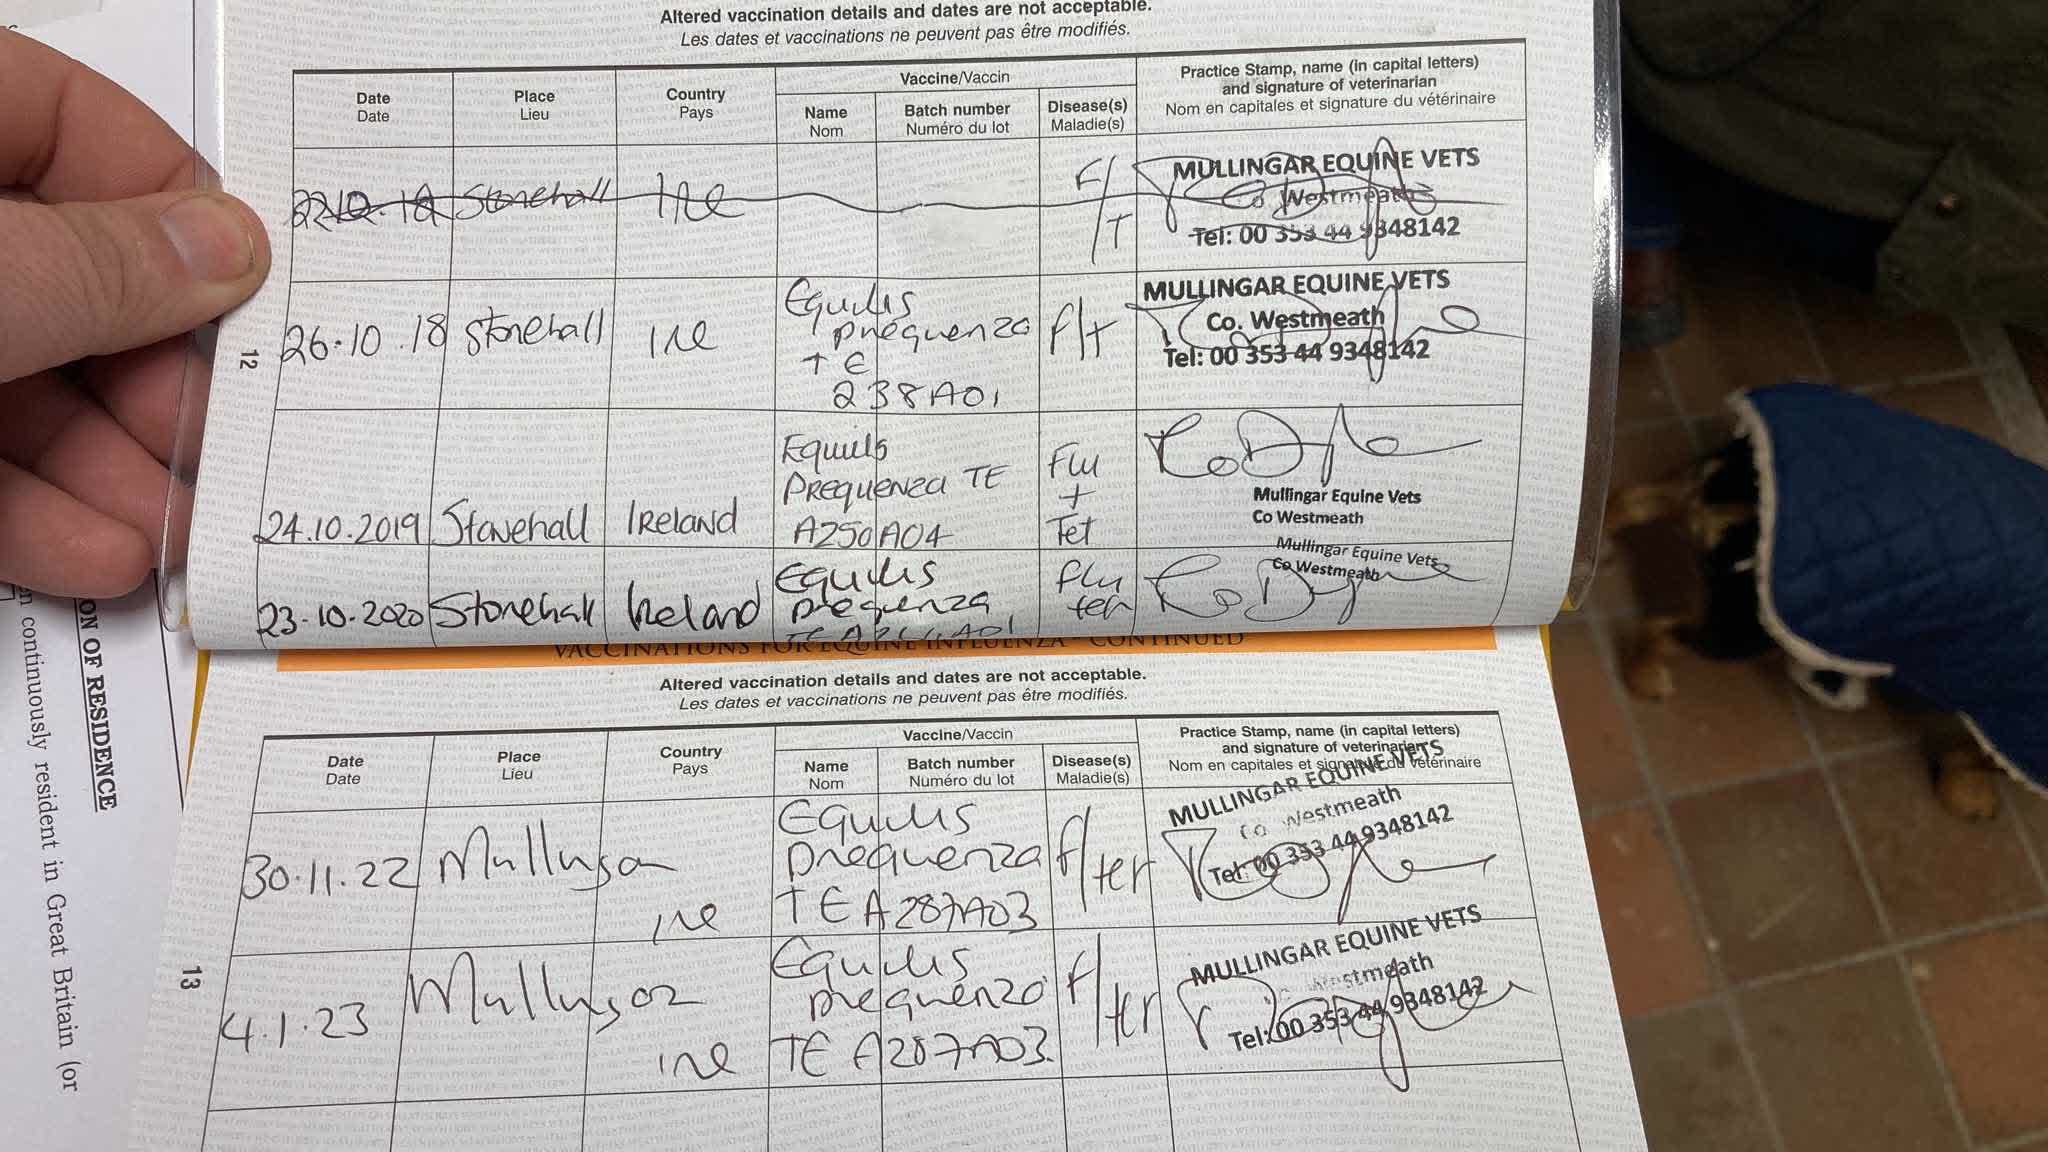 Altered vaccination details and dates are not acceptable.
Les dates et vaccinations ne peuvent pas être modifiés.
Date
Date
Place
Lieu
Country
Pays
Vaccine/Vaccin
Name
Nom
Batch number
Numéro du lot
Disease(s)
Maladie(s)
Practice Stamp, name (in capital letters)
and signature of veterinarian
Nom en capitales et signature du vétérinaire
Stonehall
Ire
F/
/T
MULLINGAR EQUINE VETS
Co Westmeath
Tel: 00 353 44 9348142
12
26.10.18
Stonehall
Ire
Equilis
prequenza
TE
238A01
F/t
MULLINGAR EQUINE VETS
Co. Westmeath
Tel: 00 353 44 9348142
24.10.2019
Stonehall
Ireland
Equilis
Prequenza TE
A250A04
Flu
+
Tet
Mullingar Equine Vets
Co Westmeath
23.10.2020
Stonehall
Ireland
Equilis
prequenza
Flu
Mullingar Equine Vets
Co Westmeath
VACCINATIONS FOR EQUINE INFLUENZA - CONTINUED
Altered vaccination details and dates are not acceptable.
Les dates et vaccinations ne peuvent pas être modifiés.
Date
Date
Place
Lieu
Country
Pays
Vaccine/Vaccin
Name
Nom
Batch number
Numéro du lot
Disease(s)
Maladie(s)
Practice Stamp, name (in capital letters)
and signature of veterinarian
Nom en capitales et signature du vétérinaire
30.11.22
Mullingar
Ire
Equilis
prequenza
TE A287A03
F/tet
MULLINGAR EQUINE VETS
Co Westmeath
Tel: 00 353 44 9348142
13
4.1.23
Mullingar
Ire
Equilis
prequenza
TE A287A03
F/tet
MULLINGAR EQUINE VETS
Westmeath
Tel: 00 353 44 9348142
ON OF RESIDENCE
n continuously resident in Great Britain (or